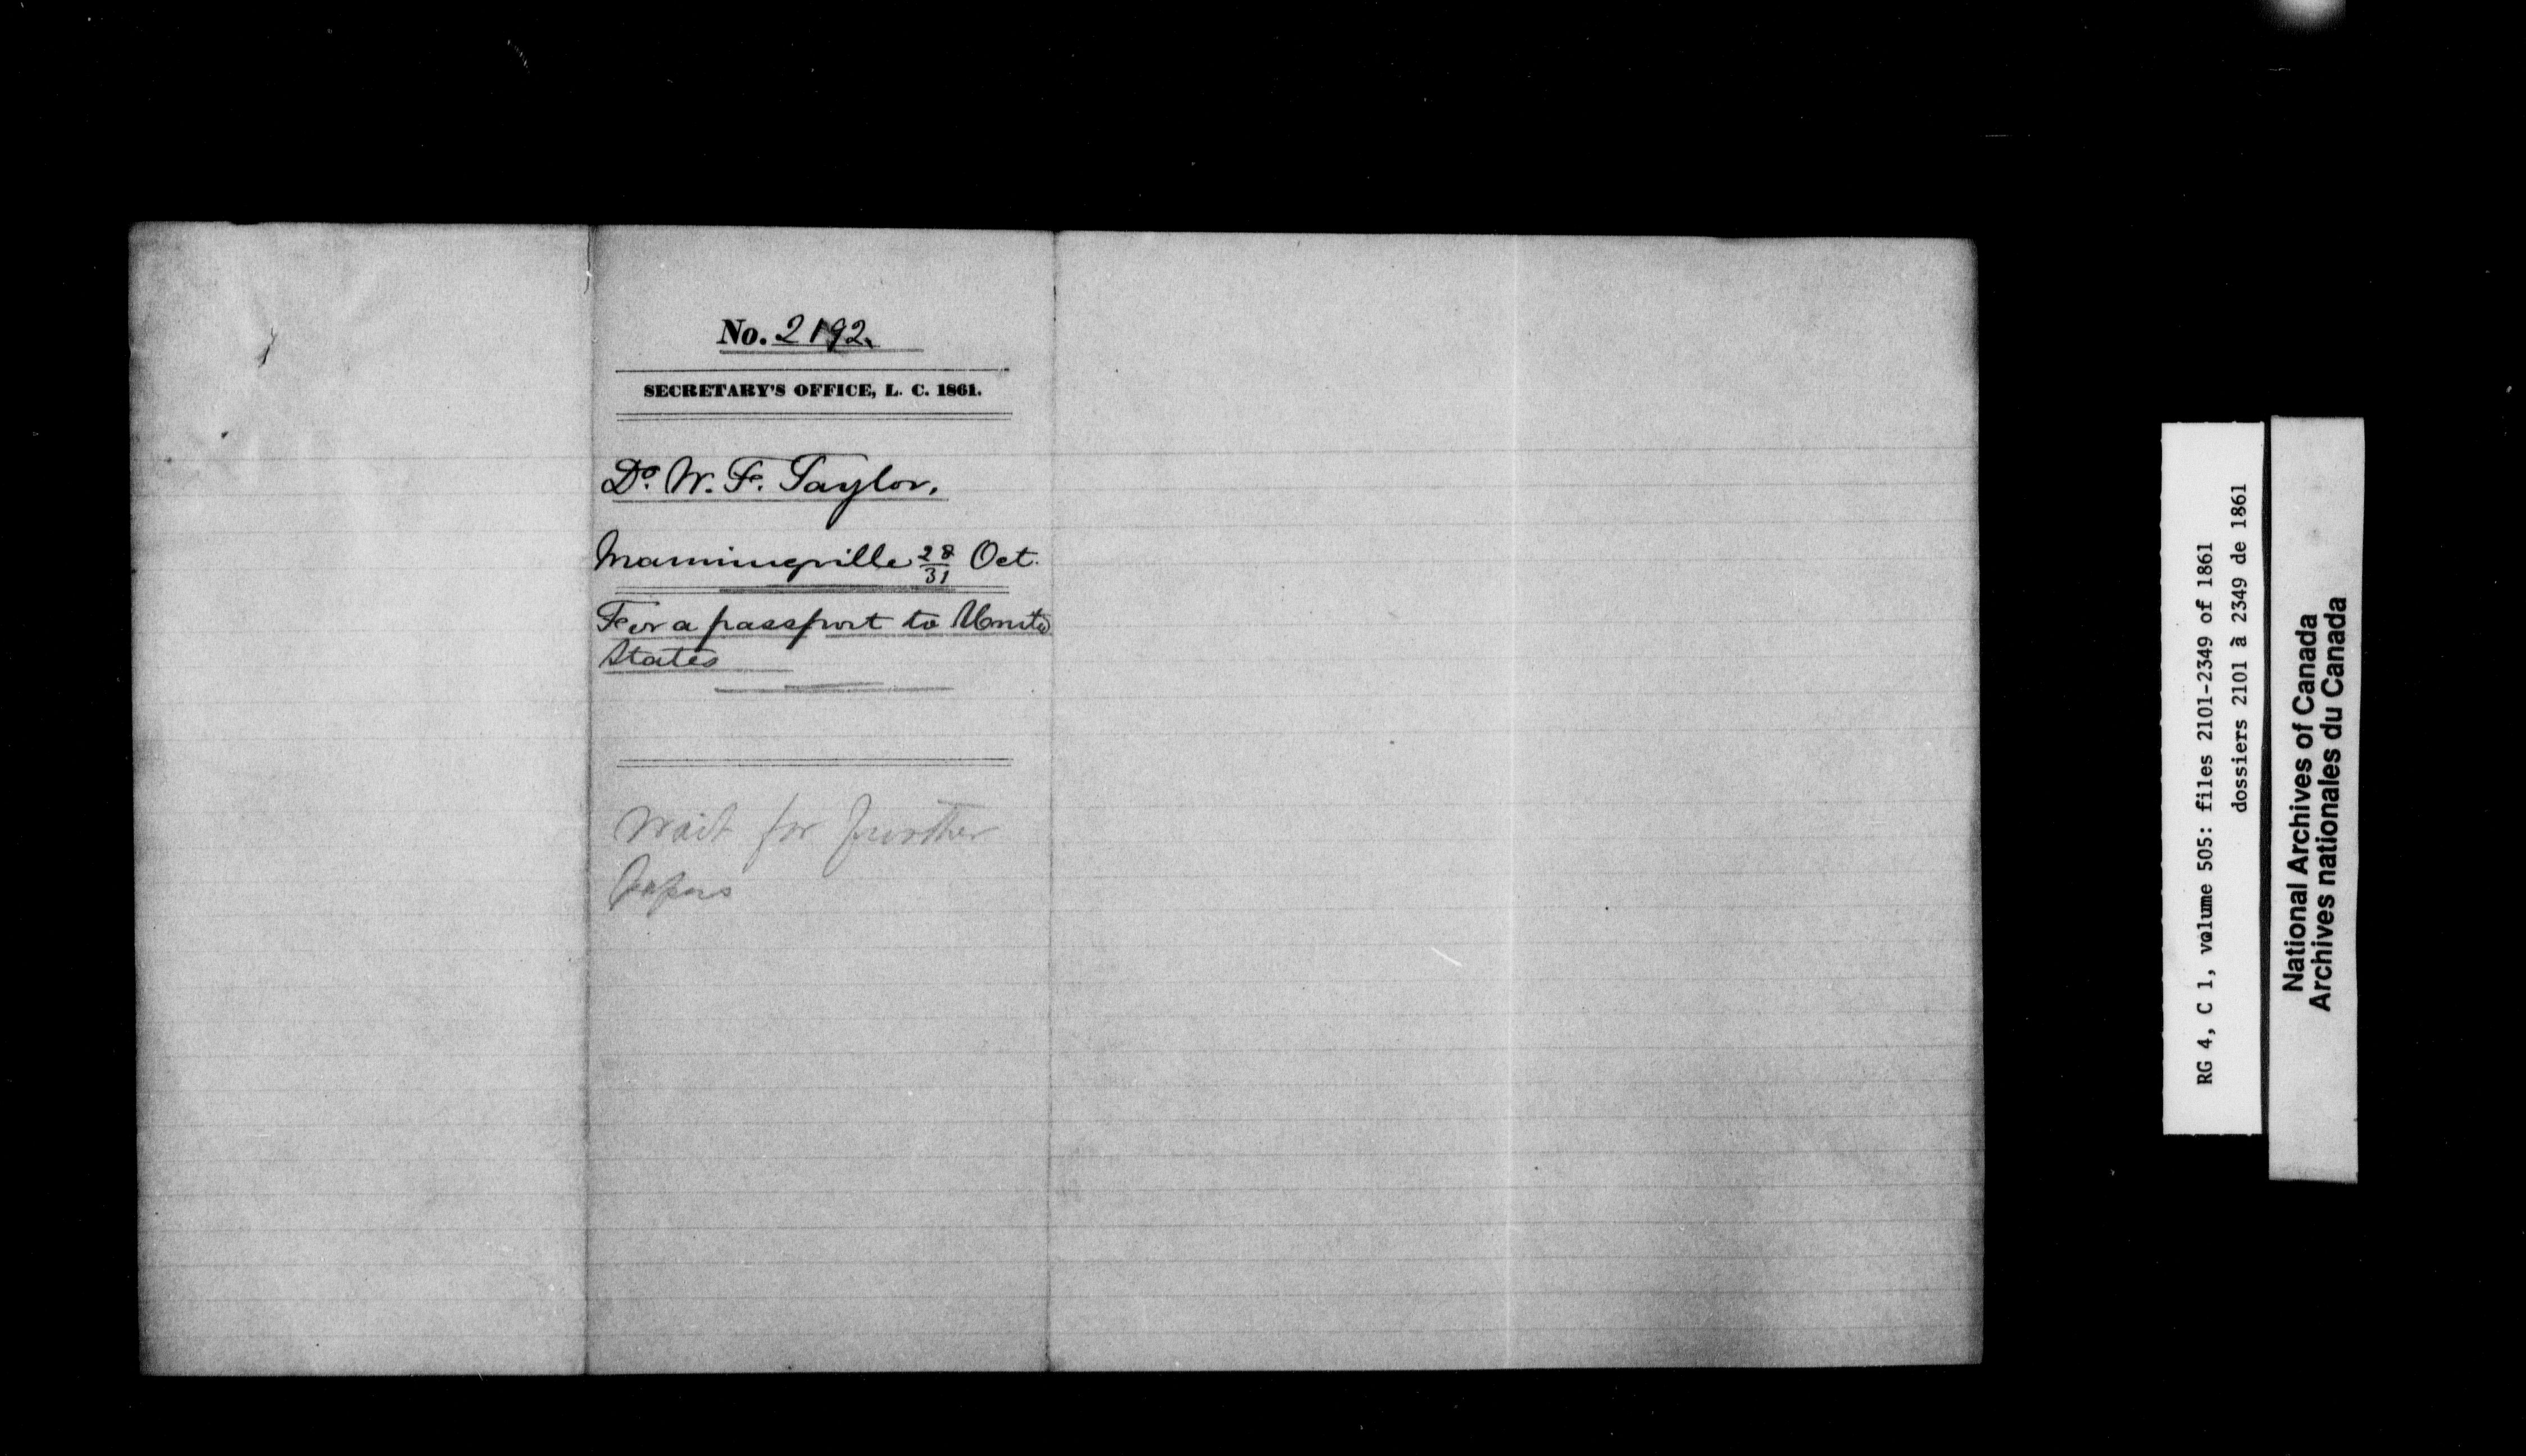 No. 2192.
SECRETARY'S OFFICE, L. C. 1861.
Dr. W. F. Taylor,
Manningville 28/31 Oct.
For a passport to Unite
States
Wait for further
Papers
RG 4, C 1, volume 505: files 2101-2349 of 1861
dossiers 2101 à 2349 de 1861
National Archives of Canada
Archives nationales du Canada